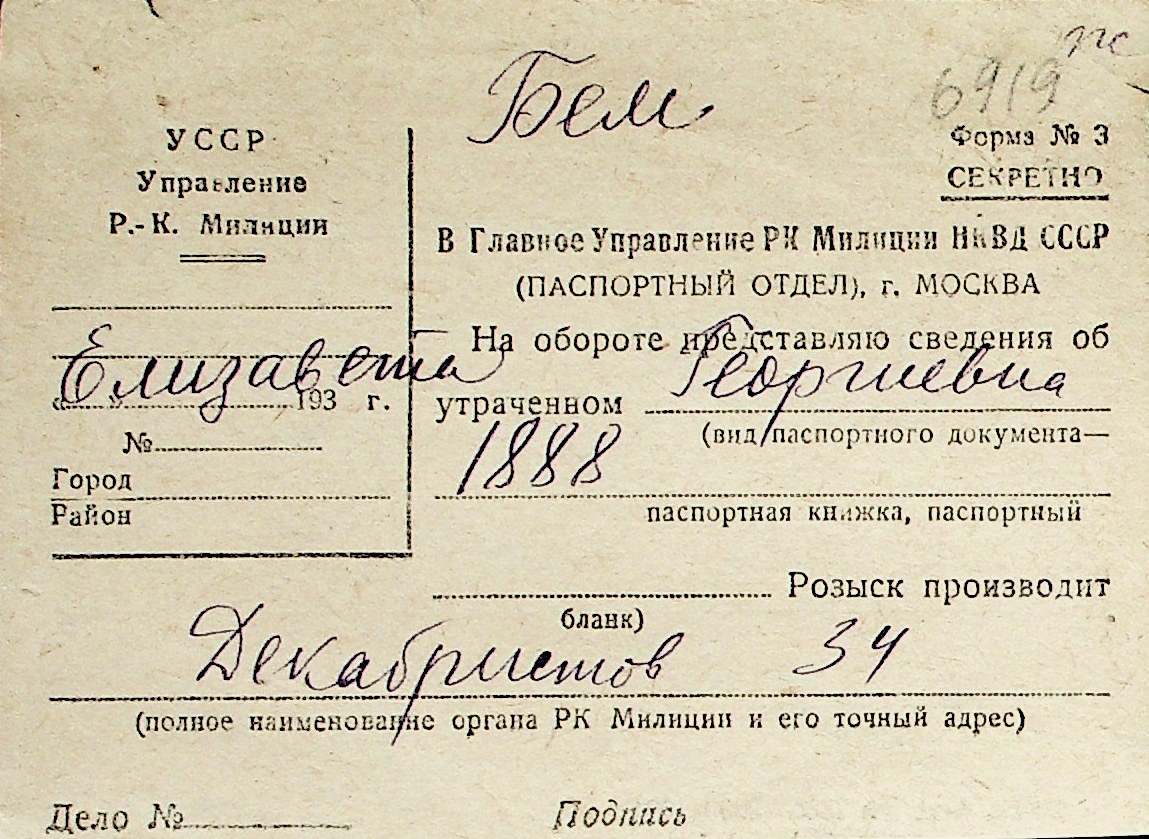 пс
6919
Бем
Форма № 3
СЕКРЕТНО
УССР
Управление
Р.-К. Милиции
Елизавета
« » 193 г.
№
Город
Район
В Главное Управление РК Милиции НКВД СССР
(ПАСПОРТНЫЙ ОТДЕЛ), г. МОСКВА
На обороте представляю сведения об
Георгиевна
утраченном
(вид паспортного документа—
1888
паспортная книжка, паспортный
Розыск производит
бланк)
Декабристов 34
(полное наименование органа РК Милиции и его точный адрес)
Дело № Подпись